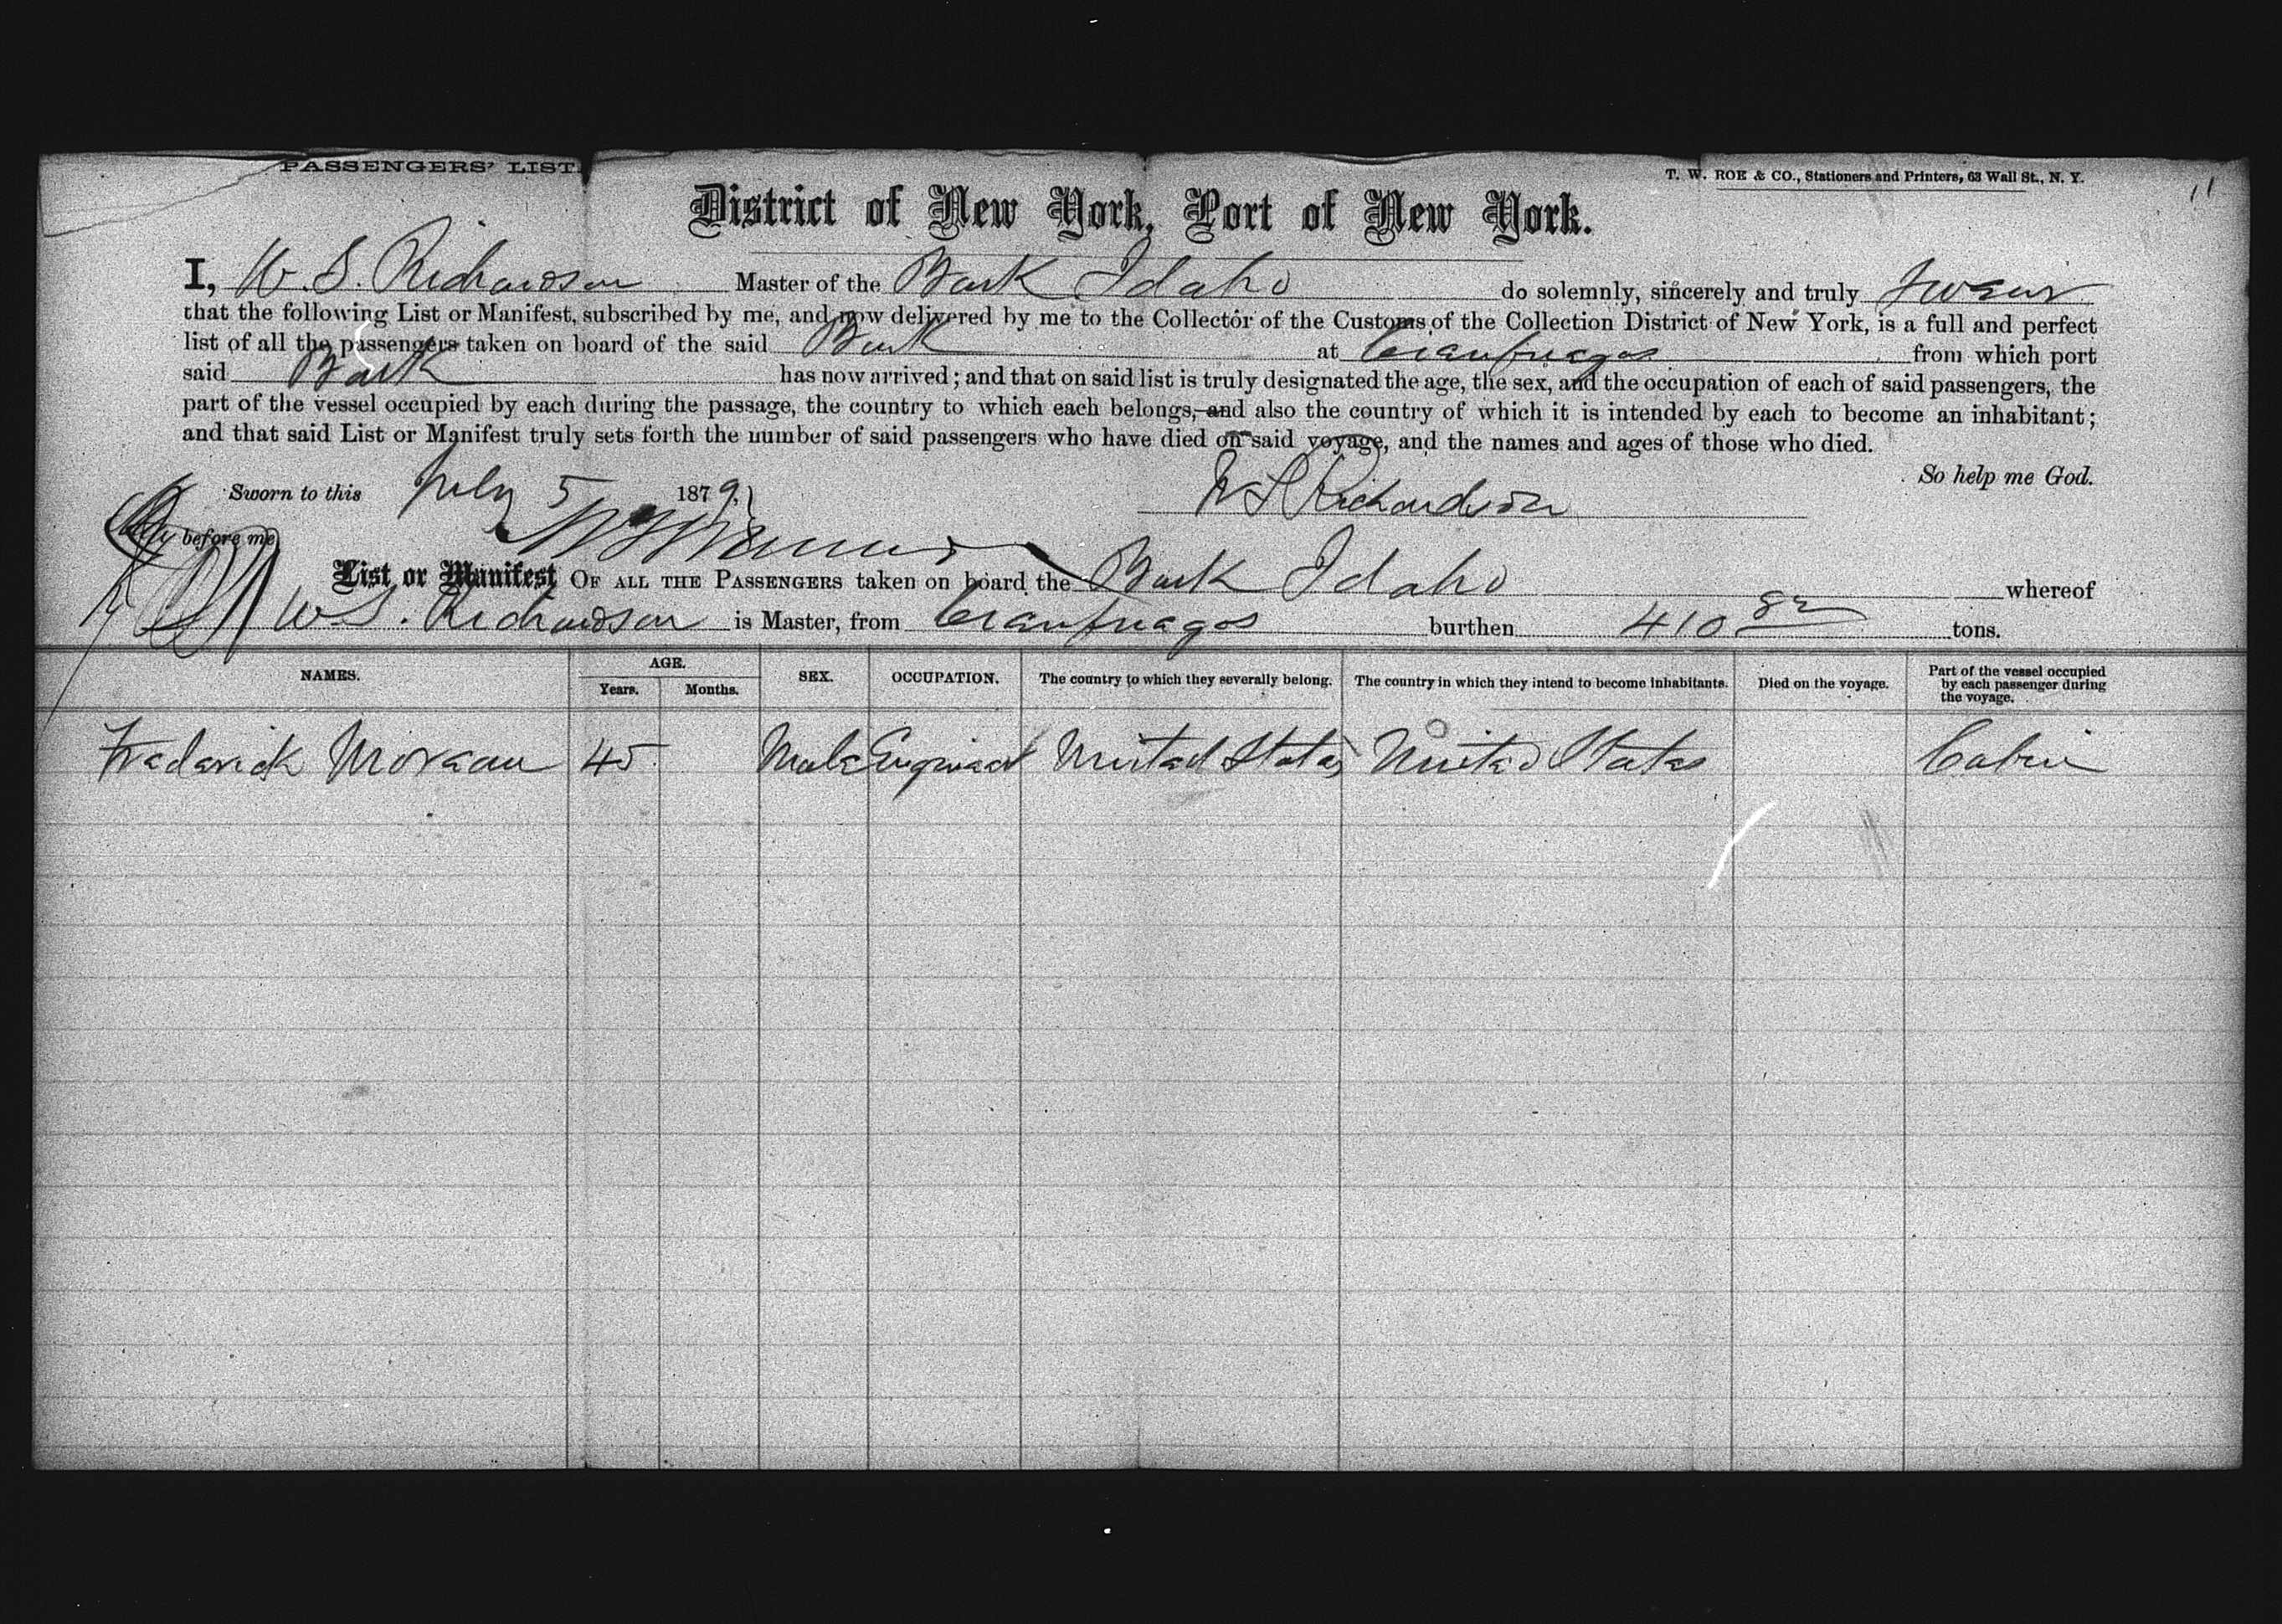 PASSENGERS' LIST.
T. W. ROE & CO., Stationers and Printers, 63 Wall St., N. Y.
11
District of New York, Port of New York.
I, W. S. Richardson Master of the Bark Idaho do solemnly, sincerely and truly swear
that the following List or Manifest, subscribed by me, and now delivered by me to the Collector of the Customs of the Collection District of New York, is a full and perfect
list of all the passengers taken on board of the said Bark at Cienfuegos from which port
said Bark has now arrived; and that on said list is truly designated the age, the sex, and the occupation of each of said passengers, the
part of the vessel occupied by each during the passage, the country to which each belongs, and also the country of which it is intended by each to become an inhabitant;
and that said List or Manifest truly sets forth the number of said passengers who have died on said voyage, and the names and ages of those who died.
So help me God.
Sworn to this July 5 1879,
W S Richardson
before me
List or Manifest OF ALL THE PASSENGERS taken on board the Bark Idaho whereof
W S. Richardson is Master, from Cienfuegos burthen 410 82 tons.
NAMES. AGE. SEX. OCCUPATION. The country to which they severally belong. The country in which they intend to become inhabitants. Died on the voyage. Part of the vessel occupied by each passenger during the voyage.
Years. Months.
Frederick Morgan 45 Male Engineer United States United States Cabin